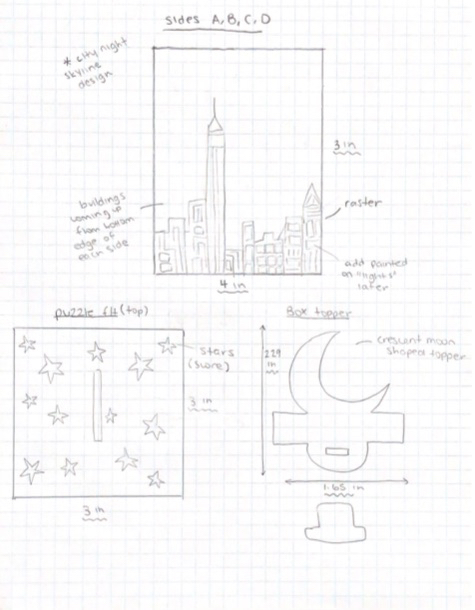 sides A, B, C, D
* city night
skyline
design
3 in
buildings
coming up
from bottom
edge of
each side
raster
add painted
on "lights"
later
4 in
puzzle fit (top)
Box topper
stars
(score)
crescent moon
shaped topper
2.29
in
3 in
3 in
1.65 in